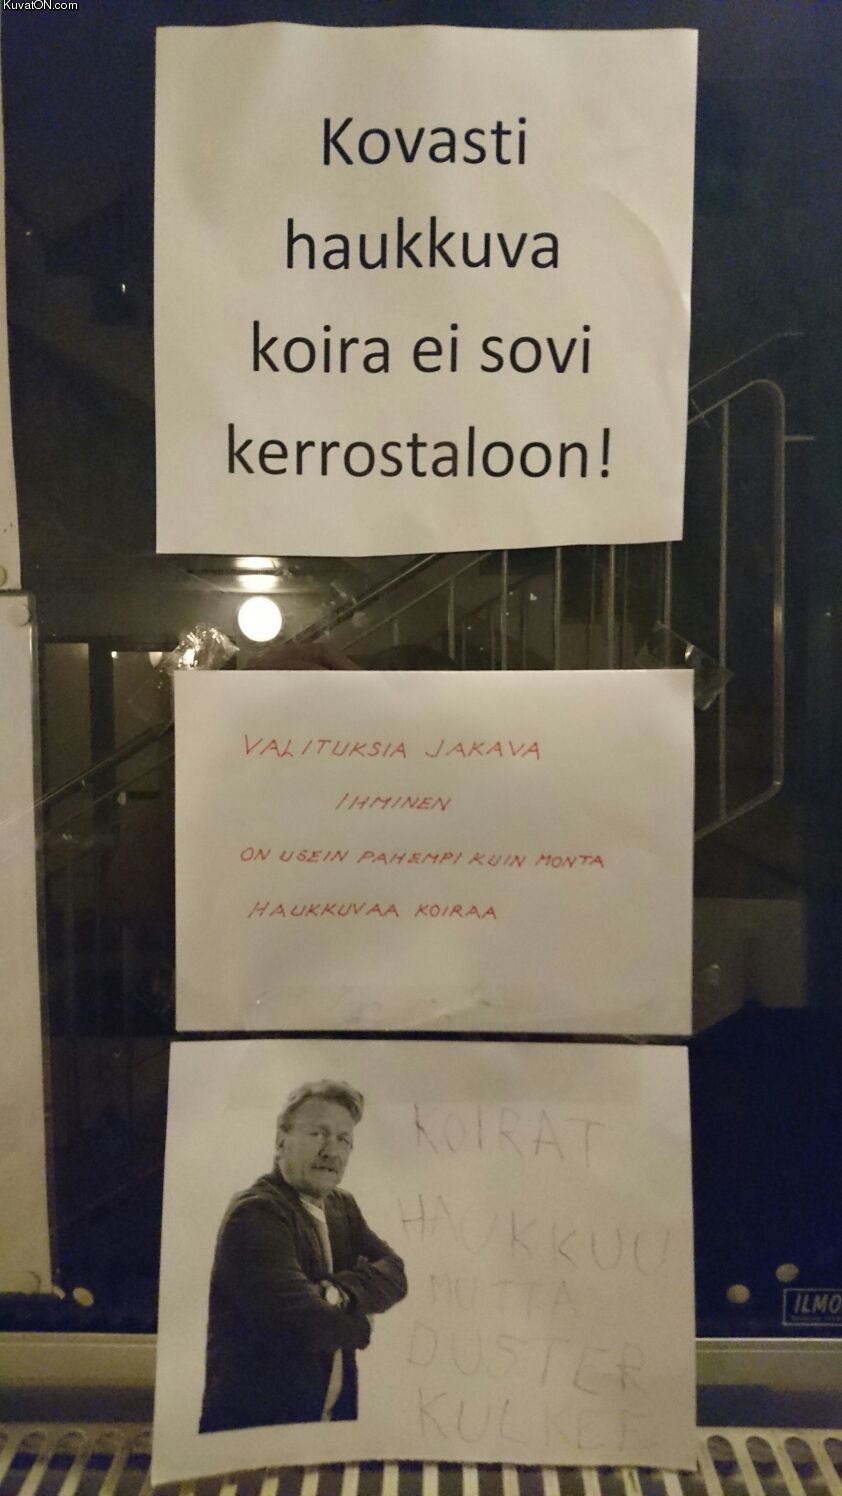 KuvatON.com
Kovasti
haukkuva
koira ei sovi
kerrostaloon!
VALITUKSIA JAKAVA
IHMINEN
ON USEIN PAHEMPI KUIN MONTA
HAUKKUVAA KOIRAA
KOIRAT
HAUKKUU
MUTTA
DUSTER
KULKEE
ILMO